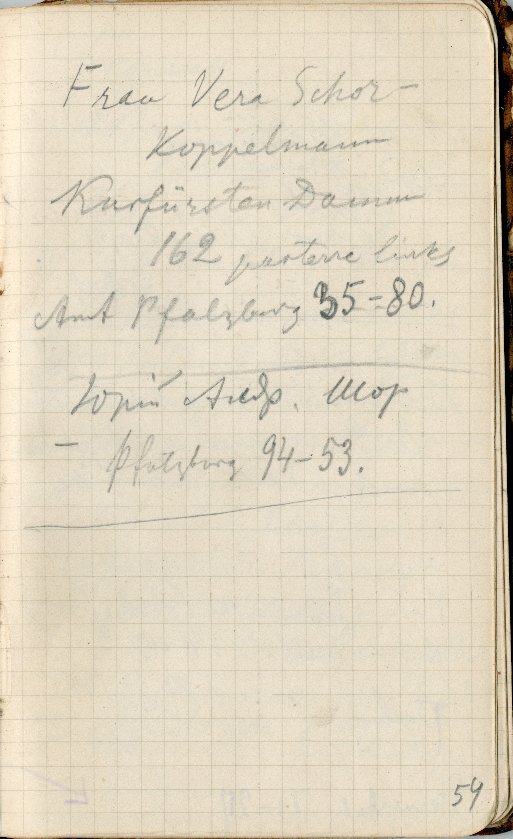 Frau Vera Schor-
Koppelmann
Kurfürsten Damm
162 parterre links
Amt Pfalzburg 35=80.
Юрій Алдр. Шор
– Pfalzburg 94-53.
54